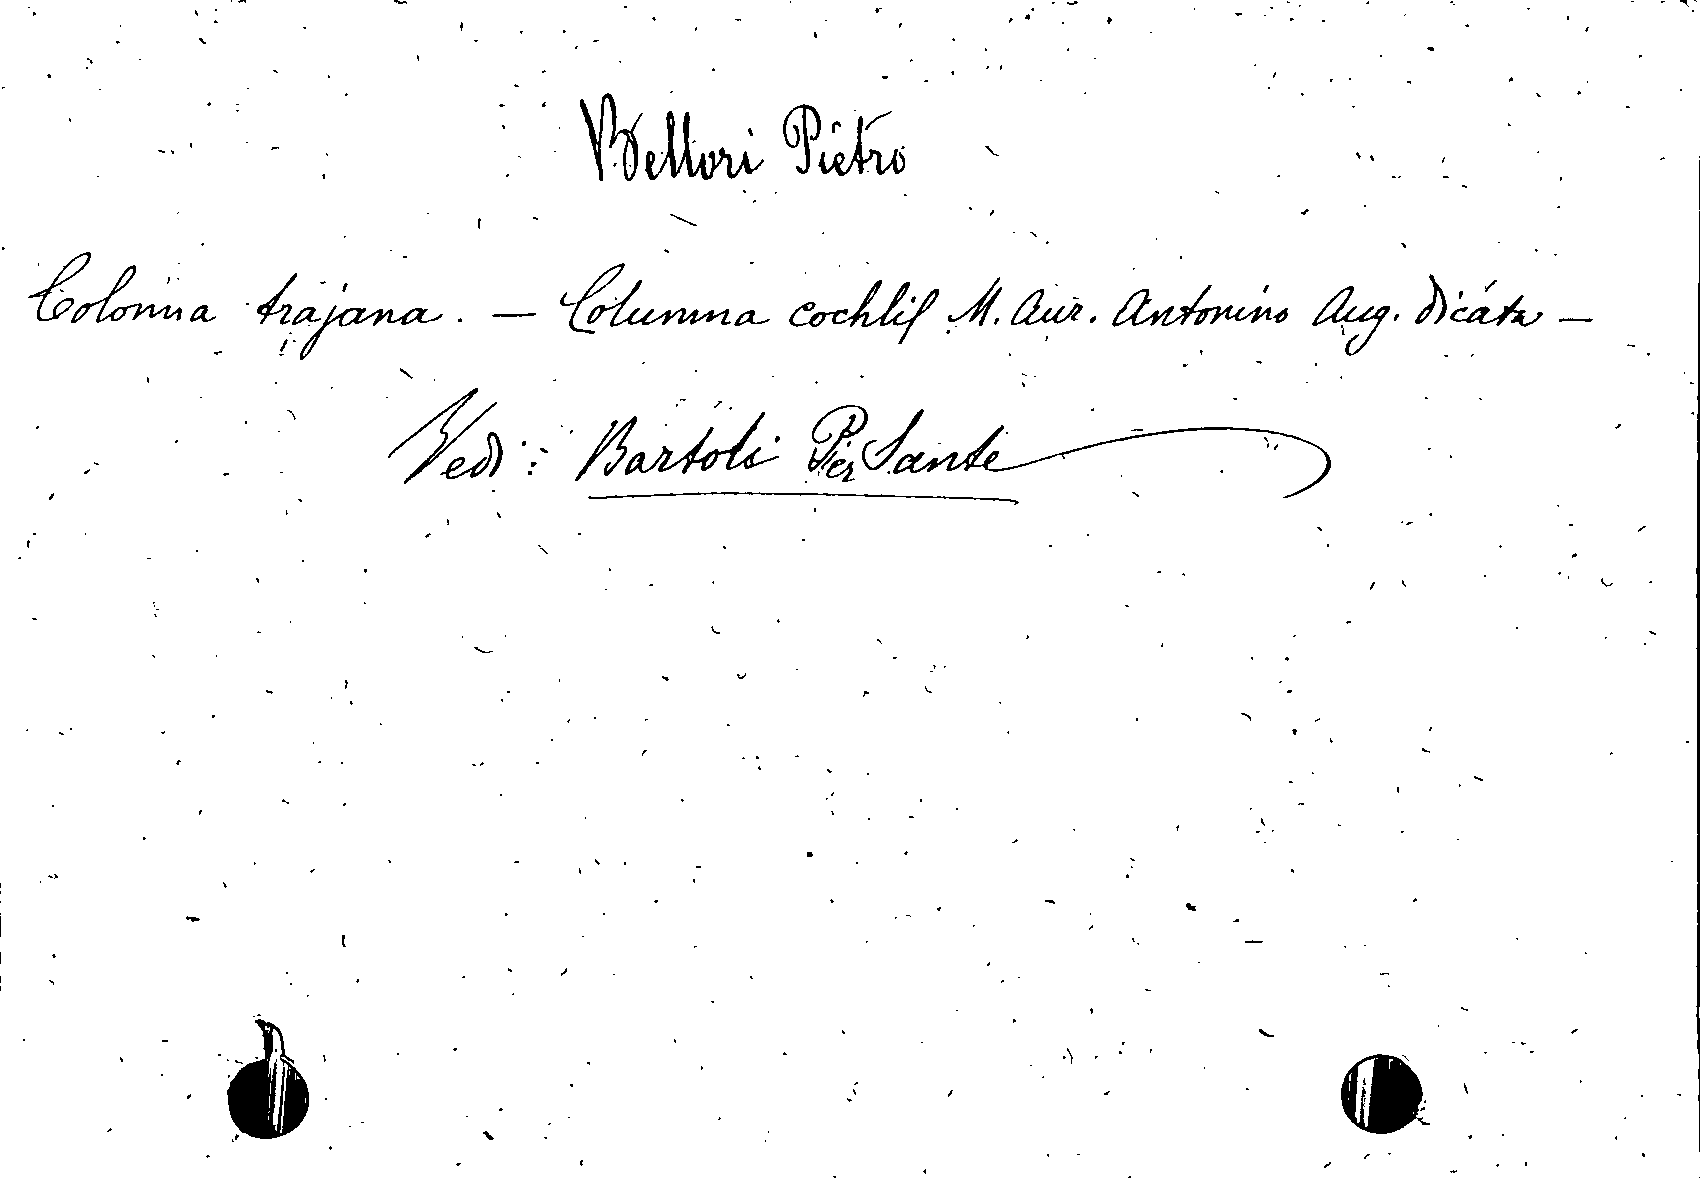 Bellori Pietro
Colonna trajana. — Columna cochlis M. Aur. Antonino Aug. dicata —
Vedi: Bartoli Pier Sante